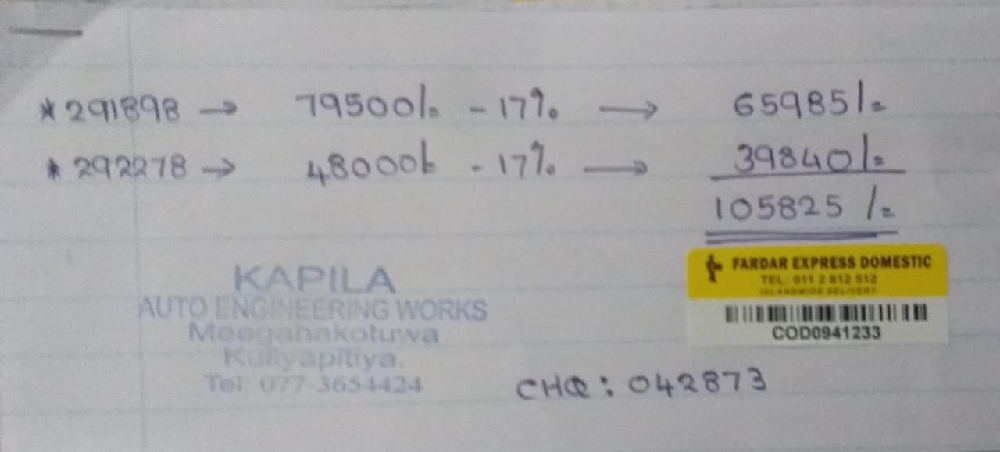 * 291898 → 79500/= - 17% → 65985/=
* 292278 → 48000/= - 17% → 39840/=
105825 /=
KAPILA
AUTO ENGINEERING WORKS
Meegahakotuwa
Kuliyapitiya.
Tel: 077-3654424
FARDAR EXPRESS DOMESTIC
TEL: 011 2 812 512
ISLANDWIDE DELIVERY
COD0941233
CHQ: 042873